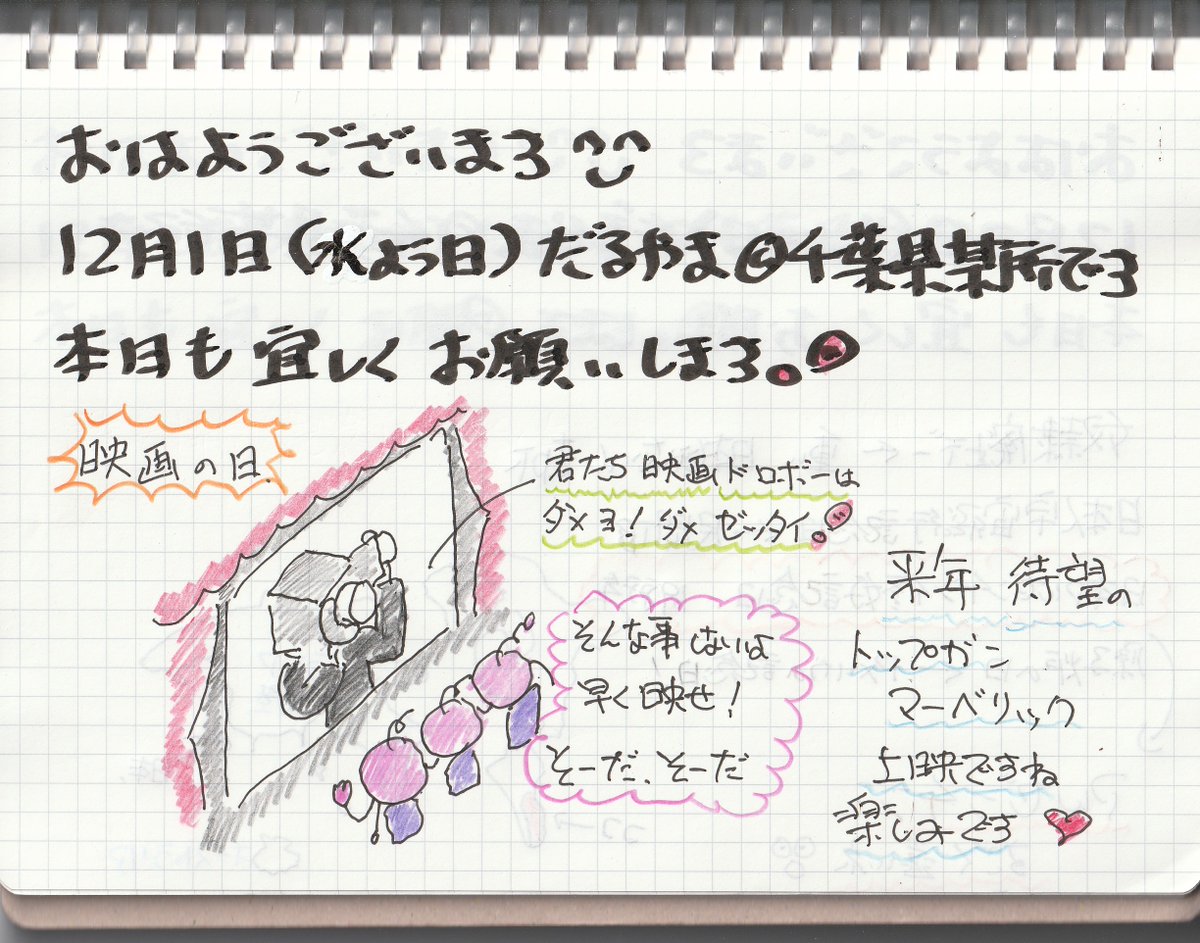 おはようございまろ
12月1日(水よう日)だるやま@千葉県某所でろ
本日も宜しくお願いしまろ。
映画の日
君たち映画ドロボーは
ダメヨ!ダメゼッタイ。
そんな事しないよ
早く映せ!
そーだ、そーだ
来年 待望の
トップガン
マーベリック
上映ですね
楽しみです